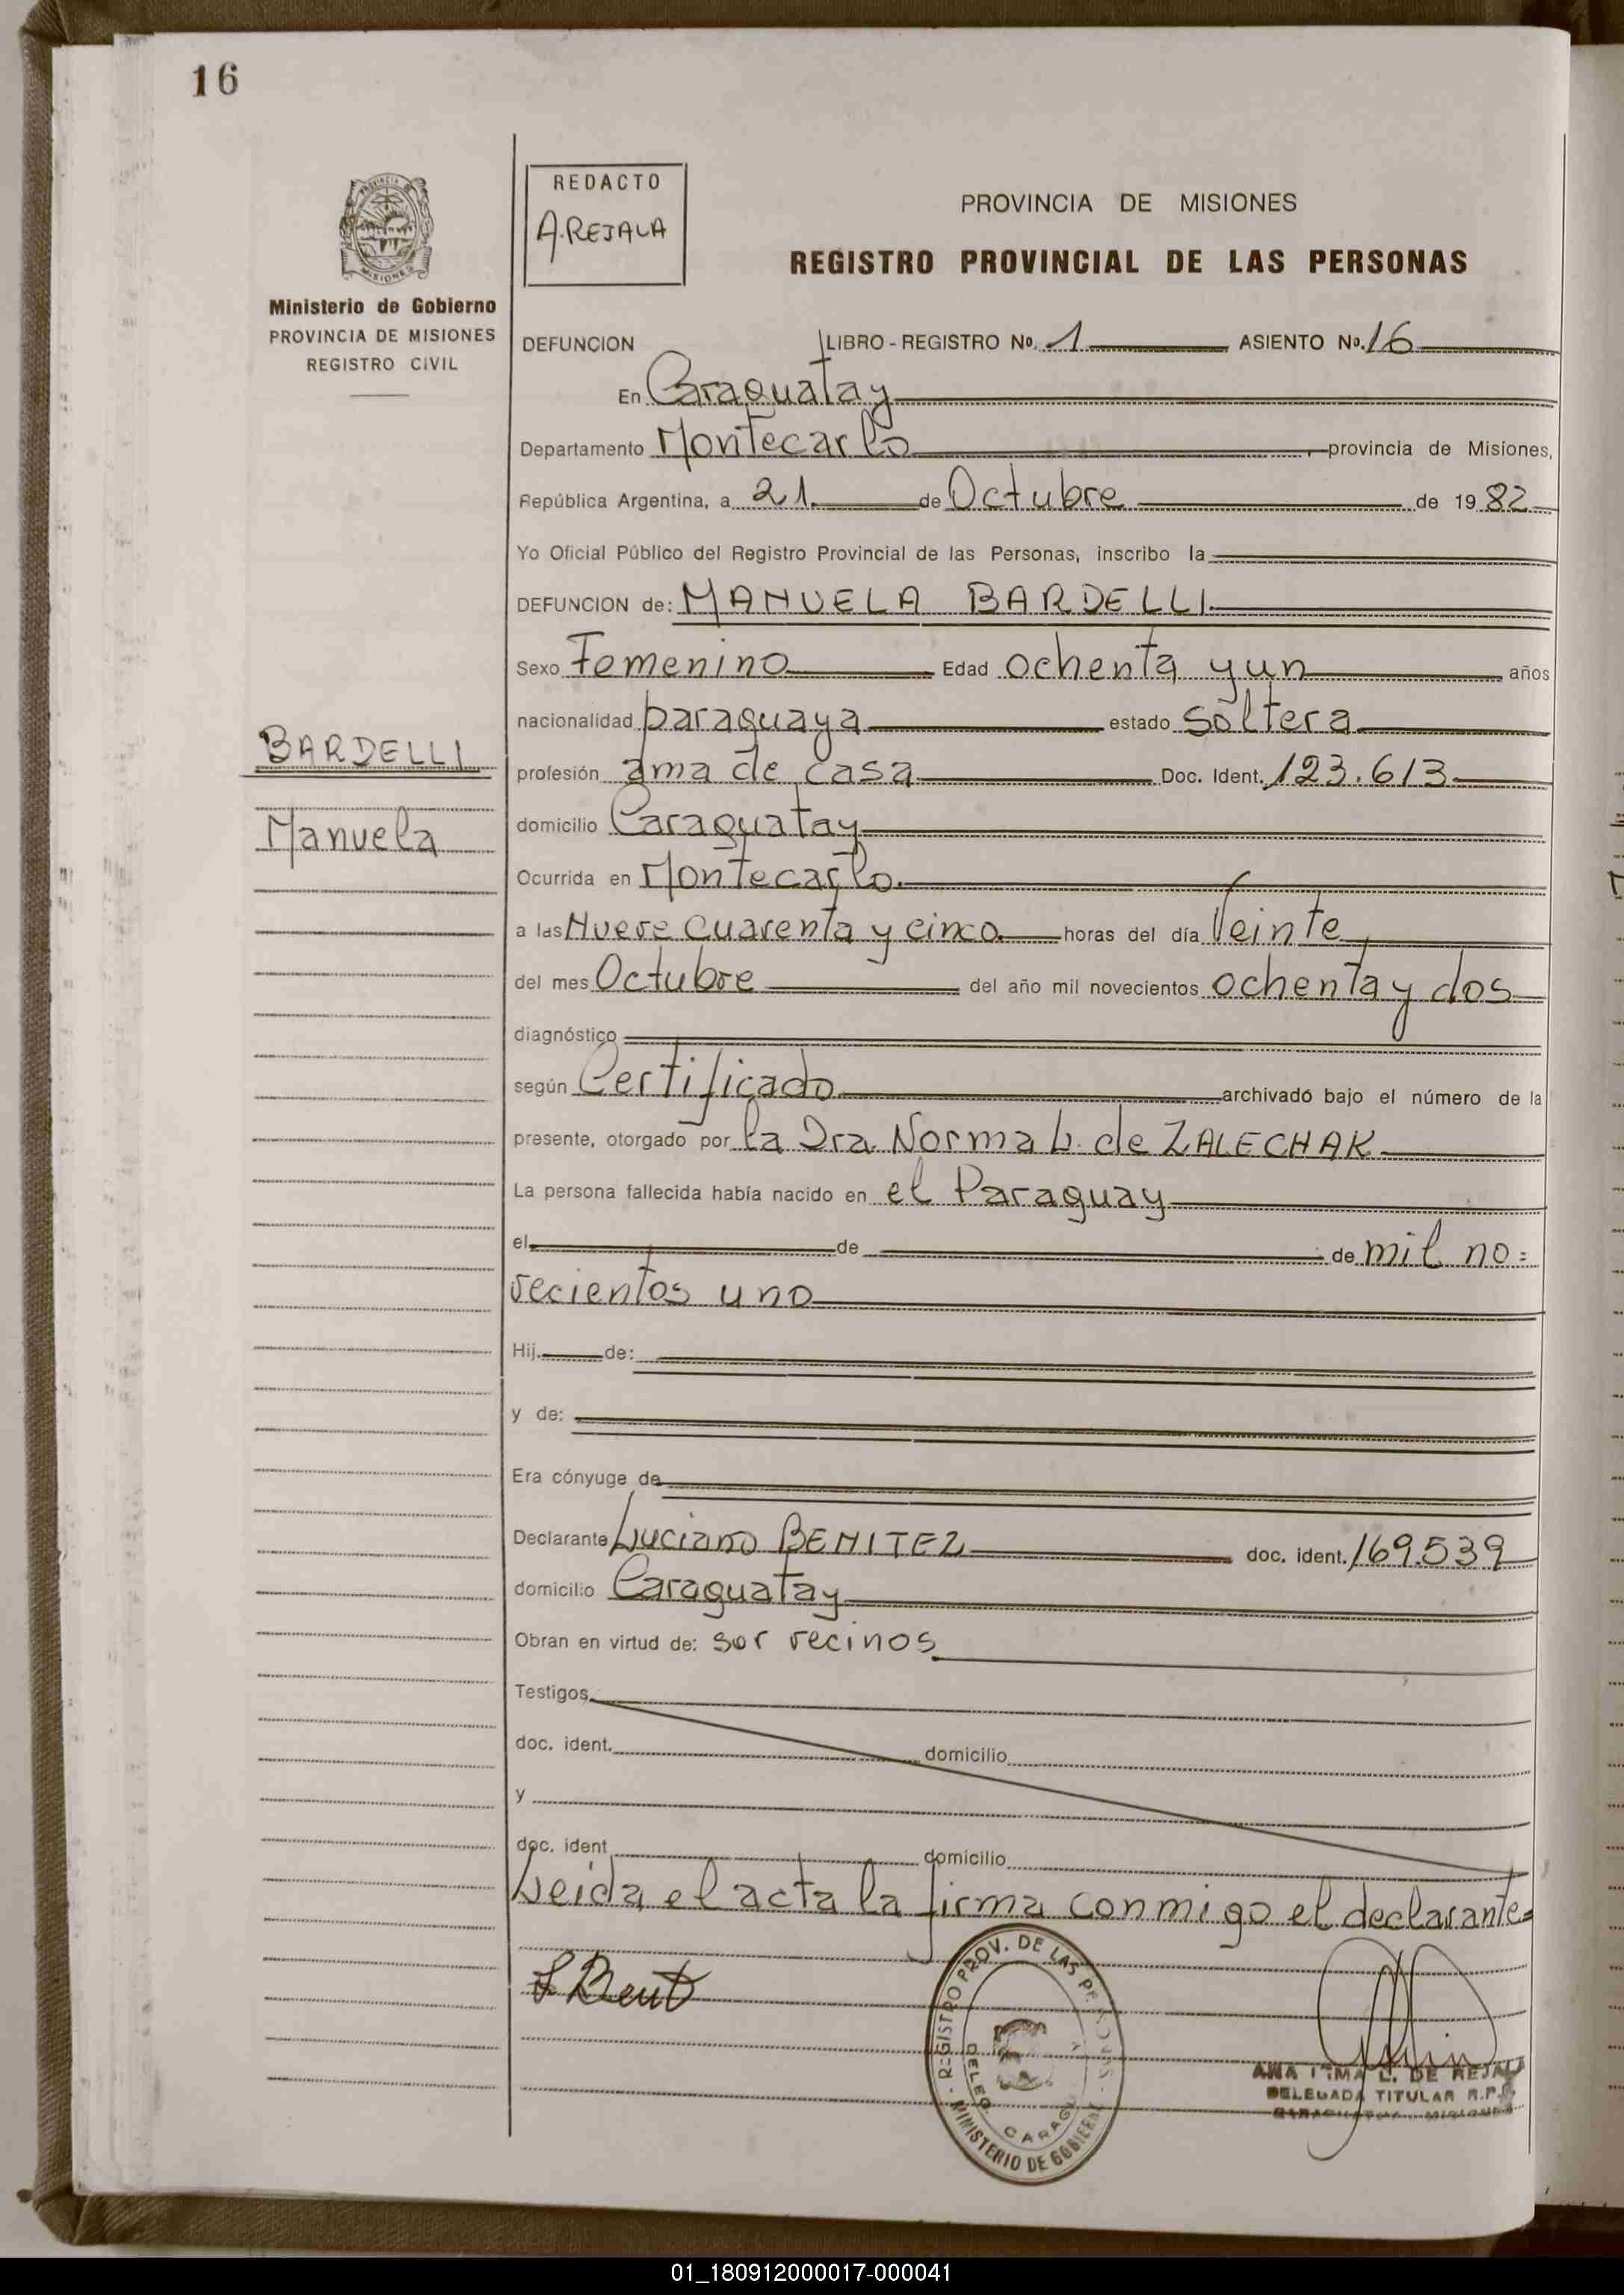 16
REDACTO
A. REJALA
PROVINCIA DE MISIONES
REGISTRO PROVINCIAL DE LAS PERSONAS
Ministerio de Gobierno
PROVINCIA DE MISIONES
REGISTRO CIVIL
DEFUNCION LIBRO - REGISTRO No. 1 ASIENTO No. 16
En Caraguatay
Departamento Montecarlo, provincia de Misiones,
República Argentina, a 21 de Octubre de 1982
Yo Oficial Público del Registro Provincial de las Personas, inscribo la
DEFUNCION de: MANUELA BARDELLI
Sexo Femenino Edad ochenta y un años
nacionalidad paraguaya estado soltera
BARDELLI
Manuela
profesión ama de casa Doc. Ident. 123.613
domicilio Caraguatay
Ocurrida en Montecarlo.
a las Nueve cuarenta y cinco horas del día Veinte
del mes Octubre del año mil novecientos ochenta y dos
diagnóstico
según Certificado archivado bajo el número de la
presente, otorgado por la Dra. Norma L. de ZALECHAK
La persona fallecida había nacido en el Paraguay
el de de mil no=
vecientos uno
Hij de:
y de:
Era cónyuge de
Declarante Luciano BENITEZ doc. ident. 169.539
domicilio Caraguatay
Obran en virtud de: ser vecinos
Testigos
doc. ident. domicilio
y
doc. ident domicilio
Leida el acta la firma conmigo el declarante=
REGISTRO PROV. DE LAS PERSONAS
MINISTERIO DE GOBIERNO
ANA IRMA L. DE REJALA
DELEGADA TITULAR R.P.P.
CARAGUATAY - MISIONES
01_180912000017-000041